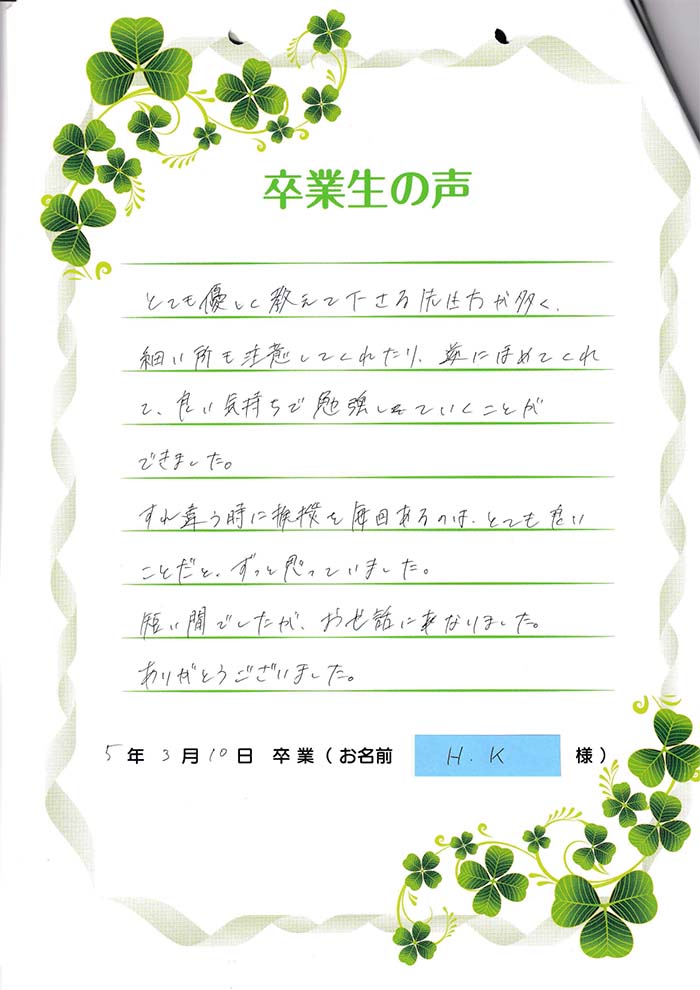 卒業生の声
とても優しく教えて下さる先生方が多く、
細い所も注意してくれたり、逆にほめてくれ
て、良い気持ちで勉強していくことが
できました。
すれ違う時に挨拶を毎回あるのは、とても良い
ことだと、ずっと思っていました。
短い間でしたが、お世話になりました。
ありがとうございました。
5年3月10日 卒業(お名前 H.K 様)